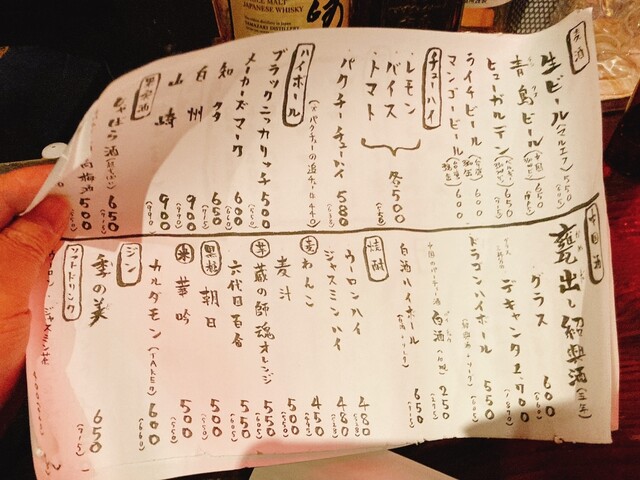 麦酒
生ビール(マルエフ) 550
青島ビール 650
ヒューガルデン 650
ライチビール 600
マンゴービール 600
チューハイ
レモン
バイス
トマト
各500
(550)
パクチーチューハイ 580
(※パクチーの追チャ 440)
ハイボール
ブラックニッカリッチ 500
(550)
メーカーズマーク 600
(660)
知多 650
(715)
白州 900
(990)
山崎 900
(990)
果実酒
650
梅酒 500
中国酒
甕出し紹興酒
グラス 600
デキャンタ 1700
ドラゴンハイボール 550
(紹興酒+ソーダ)
白酒 250
白酒ハイボール 650
(白酒+ソーダ)
焼酎
ウーロンハイ 480
ジャスミンハイ 480
麦 わんこ 450
麦汁 500
芋 蔵の師魂オレンジ 550
六代目百合 550
黒糖 朝日 500
(550)
米 華吟 500
(550)
ジン
カルダモン(TALEA) 600
(660)
季の美 650
(715)
ソフトドリンク
ウーロン
ジャスミン茶
JAPANESE WHISKY